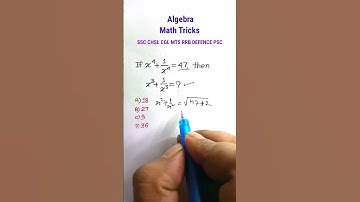 Algebra
Math Tricks
SSC CHSL CGL MTS RRB DEFENCE PSC
If x⁴ + 1/x⁴ = 47, then
x³ + 1/x³ = ? ✓
A) 18
B) 27
C) 9
D) 36
x² + 1/x² = √47+2